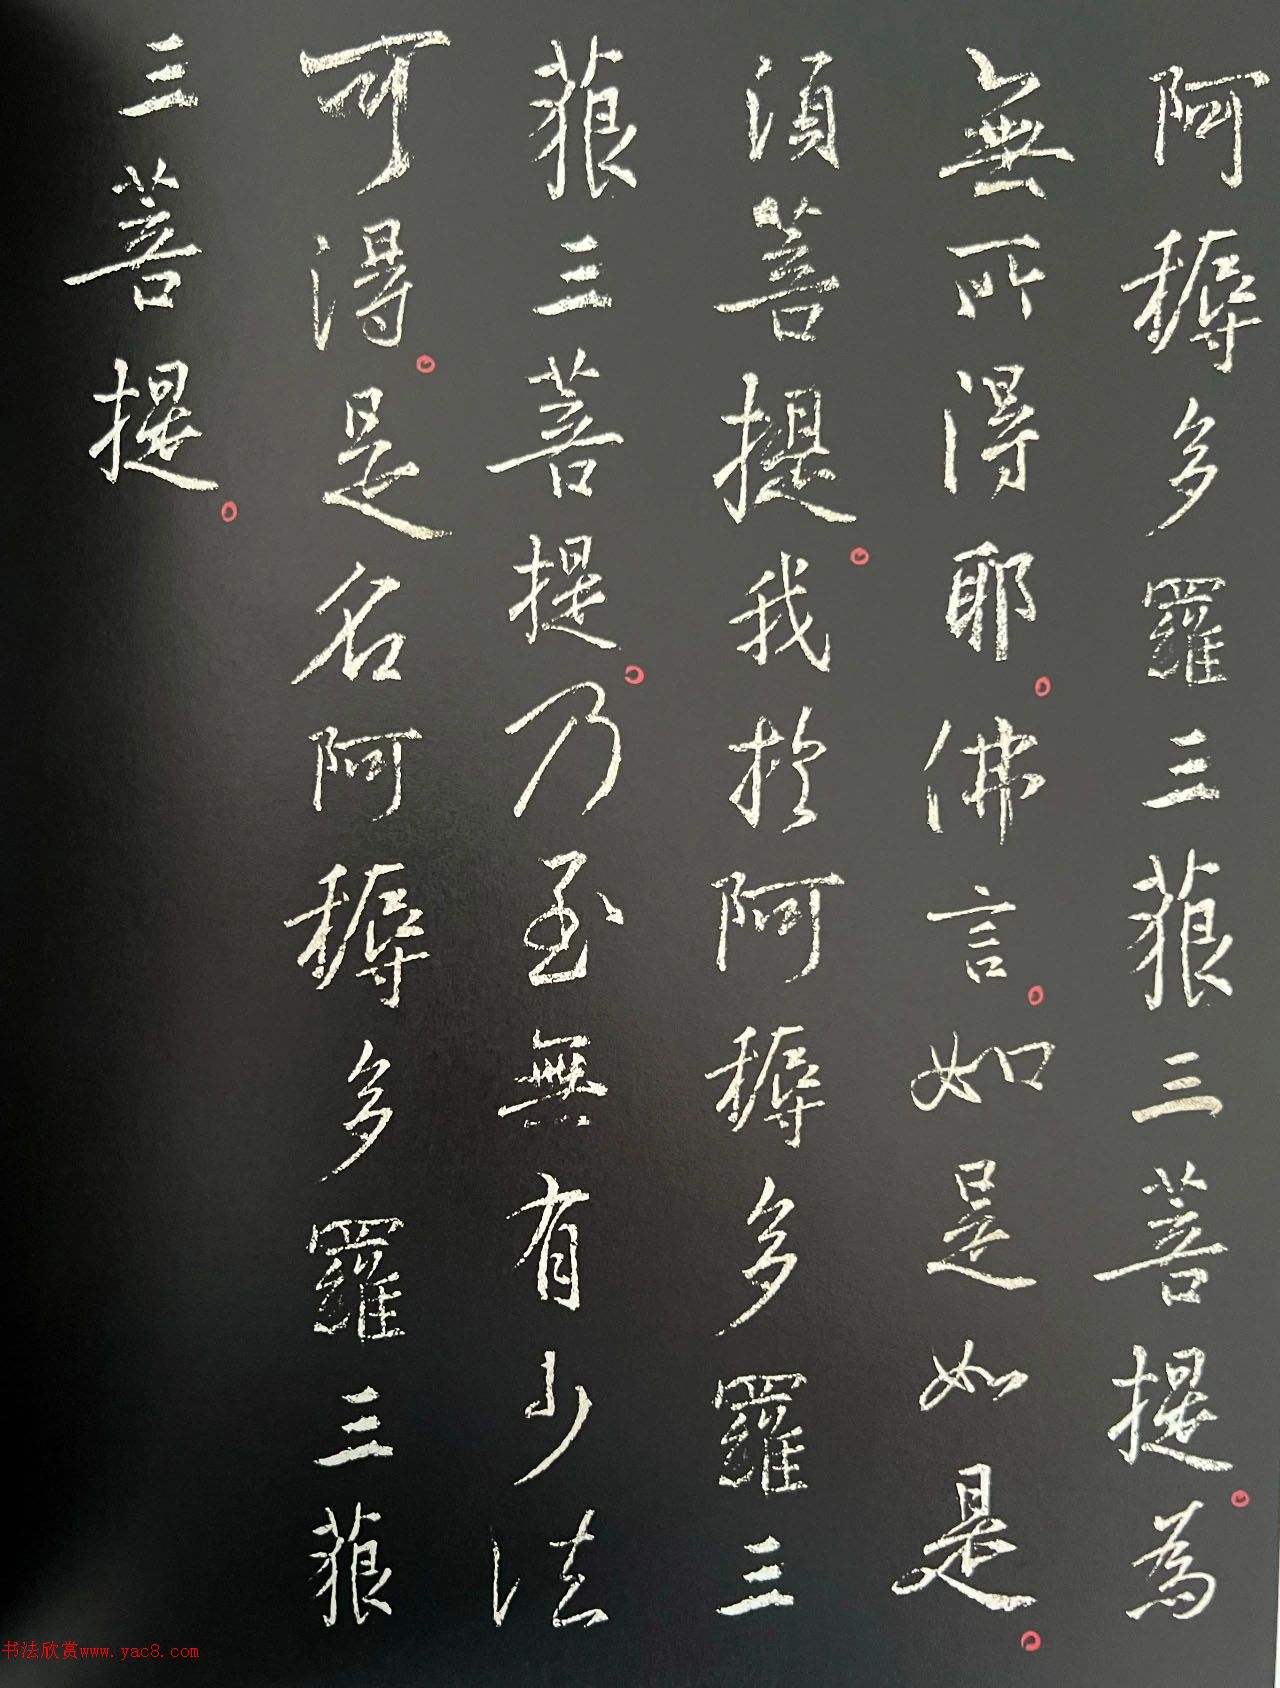 阿耨多羅三藐三菩提。為
無所得耶。佛言。如是如是。
須菩提。我於阿耨多羅三
藐三菩提。乃至無有少法
可得。是名阿耨多羅三藐
三菩提。
书法欣赏www.yac8.com